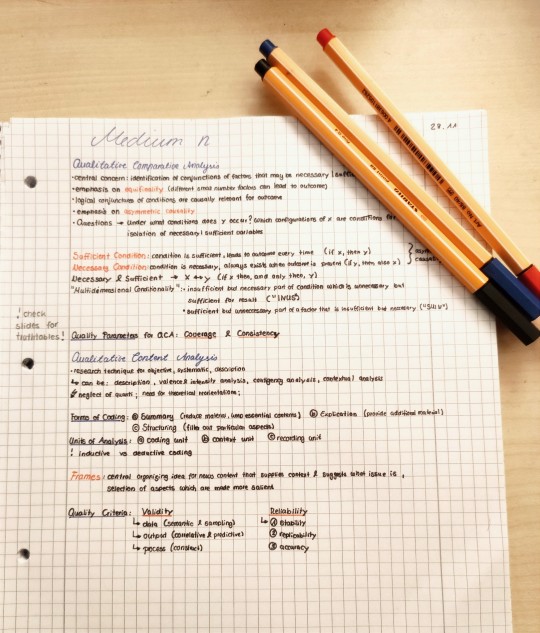 28.11
Medium n
Qualitative Comparative Analysis
• central concern: identification of conjunctions of factors that may be necessary | suffi
• emphasis on equifinality (different small number factors can lead to outcome)
• logical conjunctures of conditions are causally relevant for outcome
• emphasis on asymmetric causality
• Questions → under what conditions does y occur? Which configurations of x are conditions for
isolation of necessary | sufficient variables
Sufficient Condition: condition is sufficient, leads to outcome every time (if x, then y)
Necessary Condition: condition is necessary, always exists when outcome is present (if y, then also x)
Necessary & Sufficient → X ↔ y (if x then, and only then, y)
"Multidimensional Conditionality": • insufficient but necessary part of condition which is unnecessary but
sufficient for result ("INUS")
• sufficient but unnecessary part of a factor that is insufficient but necessary ("SUIN")
! check
slides for
truthtables!
Quality Parameters for QCA: Coverage & Consistency
Qualitative Content Analysis
• research technique for objective, systematic, description
↳ can be: description, valence & intensity analysis, contigency analysis, contextual analysis
neglect of quanti; need for theoretical reorientations;
Forms of Coding: ⓐ Summary (reduce material, keep essential contents) ⓑ Explication (provide additional material)
ⓒ Structuring (filter out particular aspects)
Units of Analysis: ⓐ coding unit ⓑ context unit ⓒ recording unit
! inductive vs deductive coding
Frames: central organizing idea for news content that supplies context & suggests what issue is,
selection of aspects which are made more salient
Quality Criteria: Validity Reliability
↳ data (semantic & sampling) ↳ ① stability
↳ output (correlative & predictive) ② replicability
↳ process (construct) ③ accuracy
STABILO